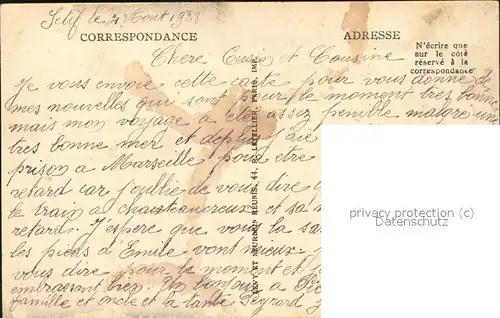 Setif le 2 Aout 1933
CORRESPONDANCE
ADRESSE
N'écrire que
sur le côté
réservé à la
correspondance
Chere Cusin et Cousine
Je vous envoie cette carte pour vous donne de
mes nouvelles que sont pour le moment tres bonne
mais mon voyage a etee assez penible malgre une
tres bonne mer et
prison a Marseille pour etre
retard car j'oublie de vous dire
le train a et sa
retard. J'espere que vous la
les pieds d'Emile vont mieux
vous dire pour le moment et
embrassant bien. Un bonjour a
famille et oncle et la tante Peyrard
LEVY ET NEURDEIN RÉUNIS, 44, R. LETELLIER, PARIS, IMP.
privacy protection
Datenschutz